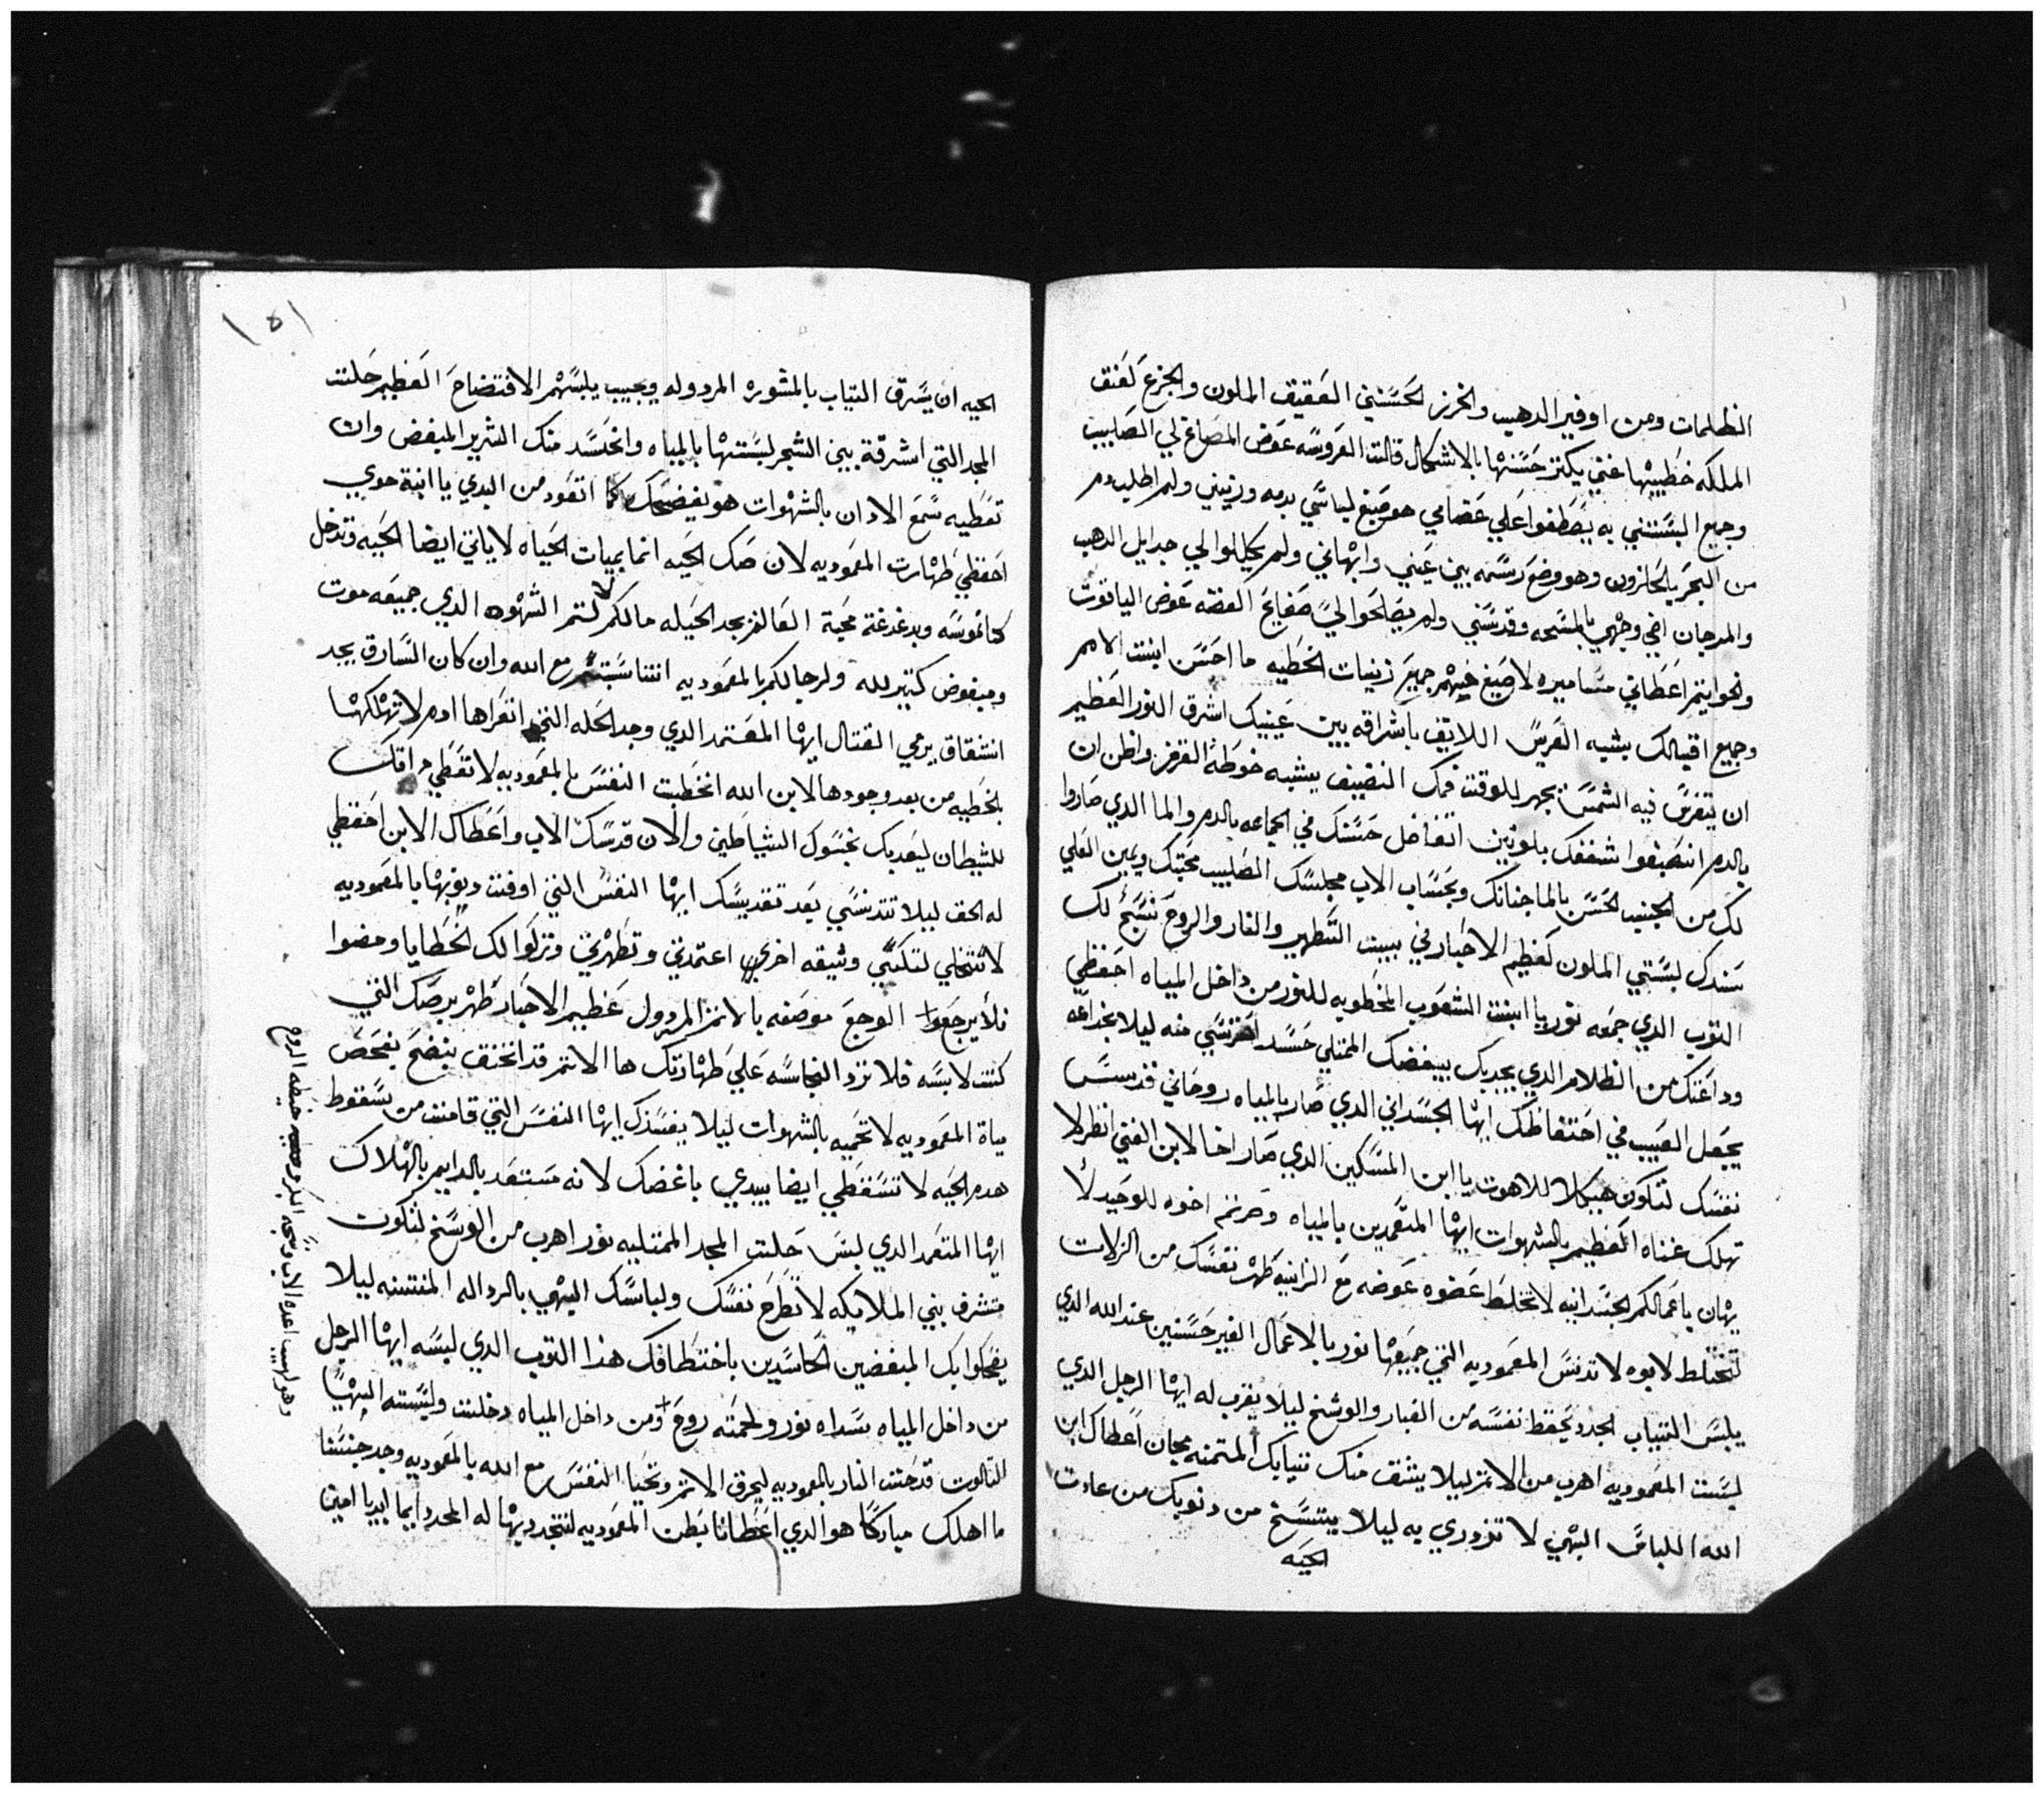 الظلمات ومن اوفير الدهب والخرز الحسنني العقيق الملون والجزع كعنق
الملكه خطيبها غني يكتر حسنها بالاشكال قالت العروسه عوض المصاغ لي الصليب
وجميع البستني به يصطفوا علي عضامي هو صبغ لباسي بدمه وزيني ولم اطلب دم
من البحر بالحازون وهو وضع رسمه بين عيني وابهاني ولم يكللوا لي جدايل الدهب
والمرجان افي وجهي بالمسحه وقدسني ولم يصالحوا لي صفايح الفضه عوض الياقوت
ونحواتيم اعطاني مساميره لاصبغ فيهم جميع زينات الخطيه ما احسن ابنت الامم
وجميع اقبالك يشبه الفرس اللايق باشراقه بين عينيك اشرق النور العظيم
ان يتفرس فيه الشمس يجهر للوقت فمك النضيف يشبه خوطة القرمز واظن ان
بالدم انصبغوا شفقك بلونين اتفاضل حسنك في الجماعه بالدم والما الدي صاروا
لك من الجنب الحسن بالما جنانك وبحساب الاب مجلسك الصليب محبتك ويمين العلي
سندك لبستي الملون كعظيم الاحبار في بيت التطهير والنار والروح نسج لك
التوب الدي جمعه نور يا ابنت الشعوب المخطوبه للنور من داخل المياه احفظي
وداعتك من الظلام الدي يجديك بيغضك الممتلي حسد احترسي منه ليلا بخداعه
يجعل العيب في احتفاظك ايها الجسداني الدي صار بالمياه روحاني قدس
نفسك لتكون هيكلا للاهوت يا ابن المسكين الدي صار اخا لابن الغني انظر لا
تهلك غناه العظيم بالشهوات ايها المتعمدين بالمياه وصرتم اخوه للوحيد لا
يهان باعمالكم الجسدانيه لا تخلط عضوه عوضه مع الزانيه طهر نفسك من الزلات
لتختلط لابوه لا تدنس المعموديه التي جميعها نور بالاعمال الغير حسنين عند الله الدي
يلبس التياب الجدد يحفظ نفسه من الغبار والوسخ ليلا يقرب له ايها الرجل الدي
لبست المعموديه اهرب من الاتم ليلا يشق منك تيابك المتمنه مجان اعطاك ابن
الله اللباس البهي لا تزدري به ليلا يتسخ من دنوبك من عادت
الحيه
١٥١
الحيه ان يسرق التياب بالمشوره المردوله ويجيب يلبسهم الافتضاح العظيم حلت
المجد التي اشرقة بين الشجر لبستها بالمياه وانحسد منك الشرير المبغض وان
تعطيه سمع الادان بالشهوات هو يفضحك كما اتعود من البدي يا ابنة حوي
احفظي طهارت المعموديه لان صك الحيه انما بميات الحياه لا ياتي ايضا الحيه وتدخل
كالموسه وبدغدغة محبة العالم يجد الحيله مالكم لاتم الشهوه الدي جميعه موت
ومبغوض كتير لله ولرجالكم بالمعموديه انتناسبتم مع الله وان كان السارق يجد
انتشقاق يرمي القتال ايها المعتمد الدي وجد الحله التي اتعراها ادم لا تهلكها
بالخطيه من بعد وجودها لابن الله انخطبت النفس بالمعموديه لا تعطي مراقك
للشيطان ليعديك نجسوك الشياطين والان قدسك الاب واعطاك الابن احفظي
له الحق ليلا تتدنسي بعد تقديسك ايها النفس التي اوفت ديونها بالمعموديه
لا تتخلي لتكتبي وتيقه اخري اعتمدتي وتطهرتي وتركوا لك الخطايا ومضوا
فلا يرجعوا الوجع موضعه بالاتم المردول عظيم الاحبار طهر برصك التي
كنت لابسه فلا نزد النجاسه علي طهارتك ها الاتم قد انخنق بنضح يفحص
مياة المعموديه لا تحميه بالشهوات ليلا يفسدك ايها النفس التي قامت من سقوط
هدم الحيه لا تسقطي ايضا بيدي باغضك لانه مستعد بالدايم بالهلاك
ايها المتعمد الدي لبس حلت المجد الممتليه نور اهرب من الوسخ لتكون
متشرف بني الملايكه لا تطرح نفسك ولباسك البهي بالردالا المنتنه ليلا
يضحكوا بك المبغضين الحاسدين باختطافك هذا التوب الدي لبسه ايها الرجل
من داخل المياه سداه نور ولحمته روح ومن داخل المياه دخلت ولبسته البهيا
التالوت قدحت النار بالمعموديه ليحرق الاتم وتحيا النفس مع الله بالمعموديه وجد جنسنا
ما اهلك مباركا هو الدي اعطانا بطن المعموديه لنتجدد بها له المجد دايما ابديا امين